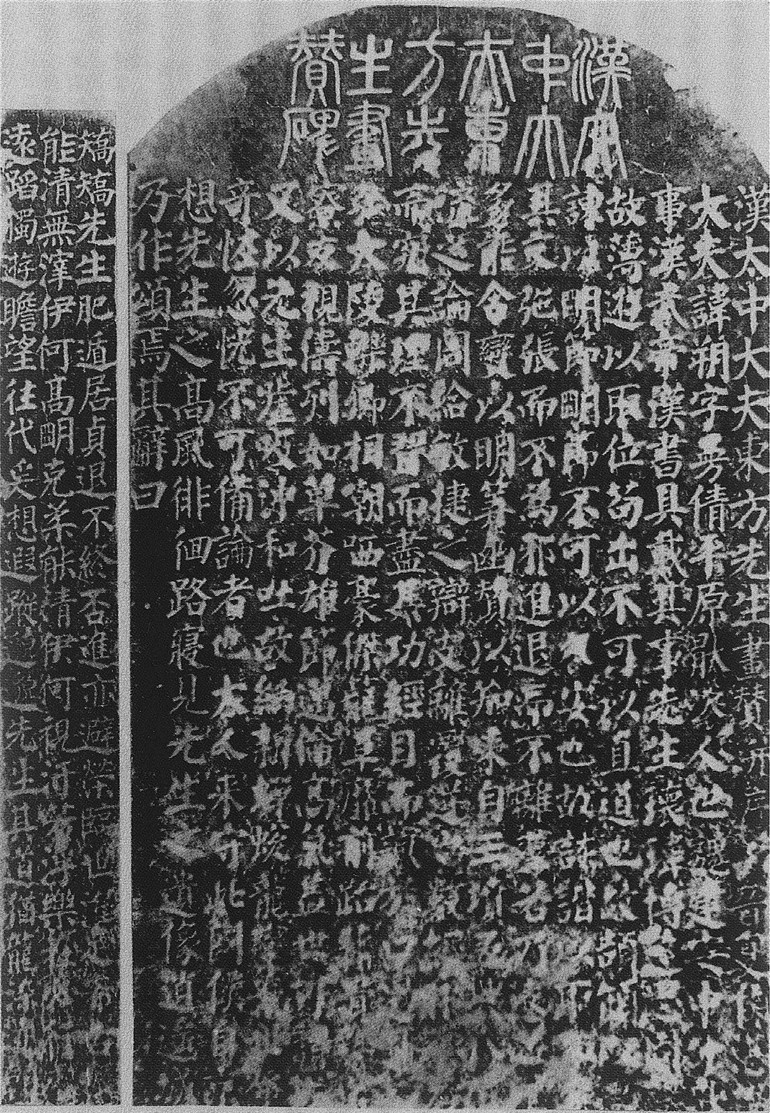 漢太
中大
夫東
方先
生畫
贊碑
漢太中大夫東方先生畫贊并序
大夫諱朔字曼倩平原厭次人也魏建安中
事漢武帝漢書具載其事先生瓌偉博達思周
故薄遊以取位苟出不可以直道也故頡頏以
諫以明節明節不可以久安也故詼諧以取
其文弛張而不為邪進退而不離羣若乃遠
多能合變以明筭幽贊以知來自三墳五
流之論周給敏捷之辯支離覆逆之數經脉
而究其理不習而盡其功經目而諷
大陵轢卿相嘲哂豪傑籠罩靡前跆籍貴
寮友視儔列如草芥雄節邁倫高氣蓋世可謂
又以先生噓吸沖和吐故納新蟬蛻龍變
奇怪忽恍不可備論者也大人來守此國僕自
想先生之高風徘徊路寢見先生之遺像逍遥
乃作頌焉其辭曰
矯矯先生肥遁居貞退不終否進亦避榮臨世濯足希古
能清無滓伊何高明克柔能清伊何視汙若浮樂在必行
遠蹈獨遊瞻望往代爰想遐蹤邈邈先生其道猶龍染迹